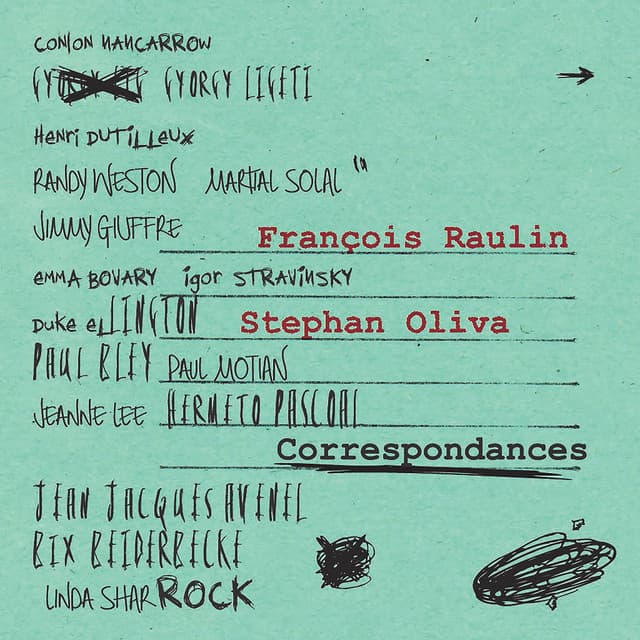 CONLON NANCARROW
GYORGY LIGETI
Henri DUTILLEUX
RANDY WESTON MARTIAL SOLAL
JIMMY GIUFFRE
François Raulin
emma BOVARY igor STRAVINSKY
Duke eLLINGTON Stephan Oliva
PAUL BLEY PAUL MOTIAN
JEANNE LEE HERMETO PASCOAL
Correspondances
JEAN JACQUES AVENEL
BIX BEIDERBECKE
LINDA SHARROCK